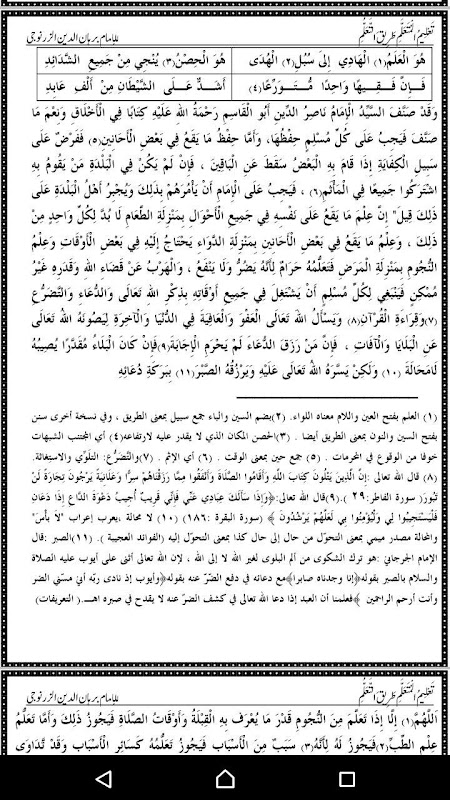 تعليم المتعلم طريق التعلم للإمام برهان الدين الزرنوجي
هُوَ الْعَلَمُ(١) الْهَادِي إِلَى سُبُلِ(٢) الْهُدَى هُوَ الْحِصْنُ(٣) يُنْجِي مِنْ جَمِيعِ الشَّدَائِدِ
فَإِنَّ فَقِيهًا وَاحِدًا مُتَوَرِّعًا(٤) أَشَدُّ عَلَى الشَّيْطَانِ مِنْ أَلْفِ عَابِدِ
وَقَدْ صَنَّفَ السَّيِّدُ الْإِمَامُ نَاصِرُ الدِّينِ أَبُو الْقَاسِمِ رَحْمَةُ اللهِ عَلَيْهِ كِتَابًا فِي الْأَخْلَاقِ وَنِعْمَ مَا
صَنَّفَ فَيَجِبُ عَلَى كُلِّ مُسْلِمٍ حِفْظُهَا، وَأَمَّا حِفْظُ مَا يَقَعُ فِي بَعْضِ الْأَحَايِينِ(٥) فَفَرْضٌ عَلَى
سَبِيلِ الْكِفَايَةِ إِذَا قَامَ بِهِ الْبَعْضُ سَقَطَ عَنِ الْبَاقِينَ ، فَإِنْ لَمْ يَكُنْ فِي الْبَلْدَةِ مَنْ يَقُومُ بِهِ
اشْتَرَكُوا جَمِيعًا فِي الْمَأْثَمِ(٦) ، فَيَجِبُ عَلَى الْإِمَامِ أَنْ يَأْمُرَهُمْ بِذَلِكَ وَيُجْبِرُ أَهْلَ الْبَلْدَةِ عَلَى
ذَلِكَ قِيلَ" إِنَّ عِلْمَ مَا يَقَعُ عَلَى نَفْسِهِ فِي جَمِيعِ الْأَحْوَالِ بِمَنْزِلَةِ الطَّعَامِ لَا بُدَّ لِكُلِّ وَاحِدٍ مِنْ
ذَلِكَ ، وَعِلْمُ مَا يَقَعُ فِي بَعْضِ الْأَحَايِينِ بِمَنْزِلَةِ الدَّوَاءِ يَحْتَاجُ إِلَيْهِ فِي بَعْضِ الْأَوْقَاتِ وَعِلْمُ
النُّجُومِ بِمَنْزِلَةِ الْمَرَضِ فَتَعَلُّمُهُ حَرَامٌ لِأَنَّهُ يَضُرُّ وَلَا يَنْفَعُ ، وَالْهَرَبُ عَنْ قَضَاءِ اللهِ وَقَدَرِهِ غَيْرُ
مُمْكِنٍ فَيَنْبَغِي لِكُلِّ مُسْلِمٍ أَنْ يَشْتَغِلَ فِي جَمِيعِ أَوْقَاتِهِ بِذِكْرِ اللهِ تَعَالَى وَالدُّعَاءِ وَالتَّضَرُّعِ
(٧)وَقِرَاءَةِ الْقُرْآنِ(٨) وَيَسْأَلُ اللهَ تَعَالَى الْعَفْوَ وَالْعَافِيَةَ فِي الدُّنْيَا وَالْآخِرَةِ لِيَصُونَهُ اللهُ تَعَالَى
عَنِ الْبَلَايَا وَالْآفَاتِ ، فَإِنَّ مَنْ رَزَقَ الدُّعَاءَ لَمْ يَحْرُمِ الْإِجَابَةَ(٩)فَإِنْ كَانَ الْبَلَاءُ مُقَدَّرًا يُصِيبُهُ
لَامَحَالَةَ (١٠) وَلَكِنْ يَسَّرَهُ اللهُ تَعَالَى عَلَيْهِ وَيَرْزُقُهُ الصَّبْرَ(١١) بِبَرَكَةِ دُعَائِهِ
(١) العلم بفتح العين واللام معناه اللواء. (٢).بضم السين والباء جمع سبيل بمعنى الطريق ، وفي نسخة أخرى سنن
بفتح السين والنون بمعنى الطريق أيضا . (٣)الحصن المكان الذي لا يقدر عليه لارتفاعه(٤) أي المجتنب الشبهات
خوفا من الوقوع في المحرمات . (٥) جمع حين بمعنى الوقت . (٦) أي الإثم . (٧)والتَّضرُّع: التلوّي والاستغاثة.
(٨) قال الله تعالى :إِنَّ الَّذِينَ يَتْلُونَ كِتَابَ اللَّهِ وَأَقَامُوا الصَّلَاةَ وَأَنْفَقُوا مِمَّا رَزَقْنَاهُمْ سِرًّا وَعَلَانِيَةً يَرْجُونَ تِجَارَةً لَنْ
تَبُورَ( سورة الفاطر:٢٩ ).(٩)قال الله تعالى:﴿وَإِذَا سَأَلَكَ عِبَادِي عَنِّي فَإِنِّي قَرِيبٌ أُجِيبُ دَعْوَةَ الدَّاعِ إِذَا دَعَانِ
فَلْيَسْتَجِيبُوا لِي وَلْيُؤْمِنُوا بِي لَعَلَّهُمْ يَرْشُدُونَ ﴾ (سورة البقرة :١٨٦) (١٠) لا محالة ،يعرب إعراب "لا بأس"
والمحالة مصدر ميمي بمعنى التحوّل من حال إلى حال كذا بمعنى التحوّل إليه (الفوائد العجيبة ). (١١)الصبر :قال
الإمام الجرجاني :هو ترك الشكوى من ألم البلوى لغير الله لا إلى الله ، لإن الله تعالى أثنى على أيوب عليه الصلاة
والسلام بالصبر بقوله﴿إنا وجدناه صابرا﴾مع دعائه في دفع الضّرّ عنه بقوله﴿وأيوب إذ نادى ربّه أني مسّني الضر
وأنت أرحم الراحمين ﴾فعلمنا أن العبد إذا دعا الله تعالى في كشف الضرّ عنه لا يقدح في صبره اهـ.( التعريفات)
تعليم المتعلم طريق التعلم للإمام برهان الدين الزرنوجي
اللَّهُمَّ(١) إِلَّا إِذَا تَعَلَّمَ مِنَ النُّجُومِ قَدْرَ مَا يُعْرَفُ بِهِ الْقِبْلَةُ وَأَوْقَاتُ الصَّلَاةِ فَيَجُوزُ ذَلِكَ وَأَمَّا تَعَلُّمُ
عِلْمِ الطِّبِّ(٢)فَيَجُوزُ لَهُ لِأَنَّهُ(٣) سَبَبٌ مِنَ الْأَسْبَابِ فَيَجُوزُ تَعَلُّمُهُ كَسَائِرِ الْأَسْبَابِ وَقَدْ تَدَاوَى